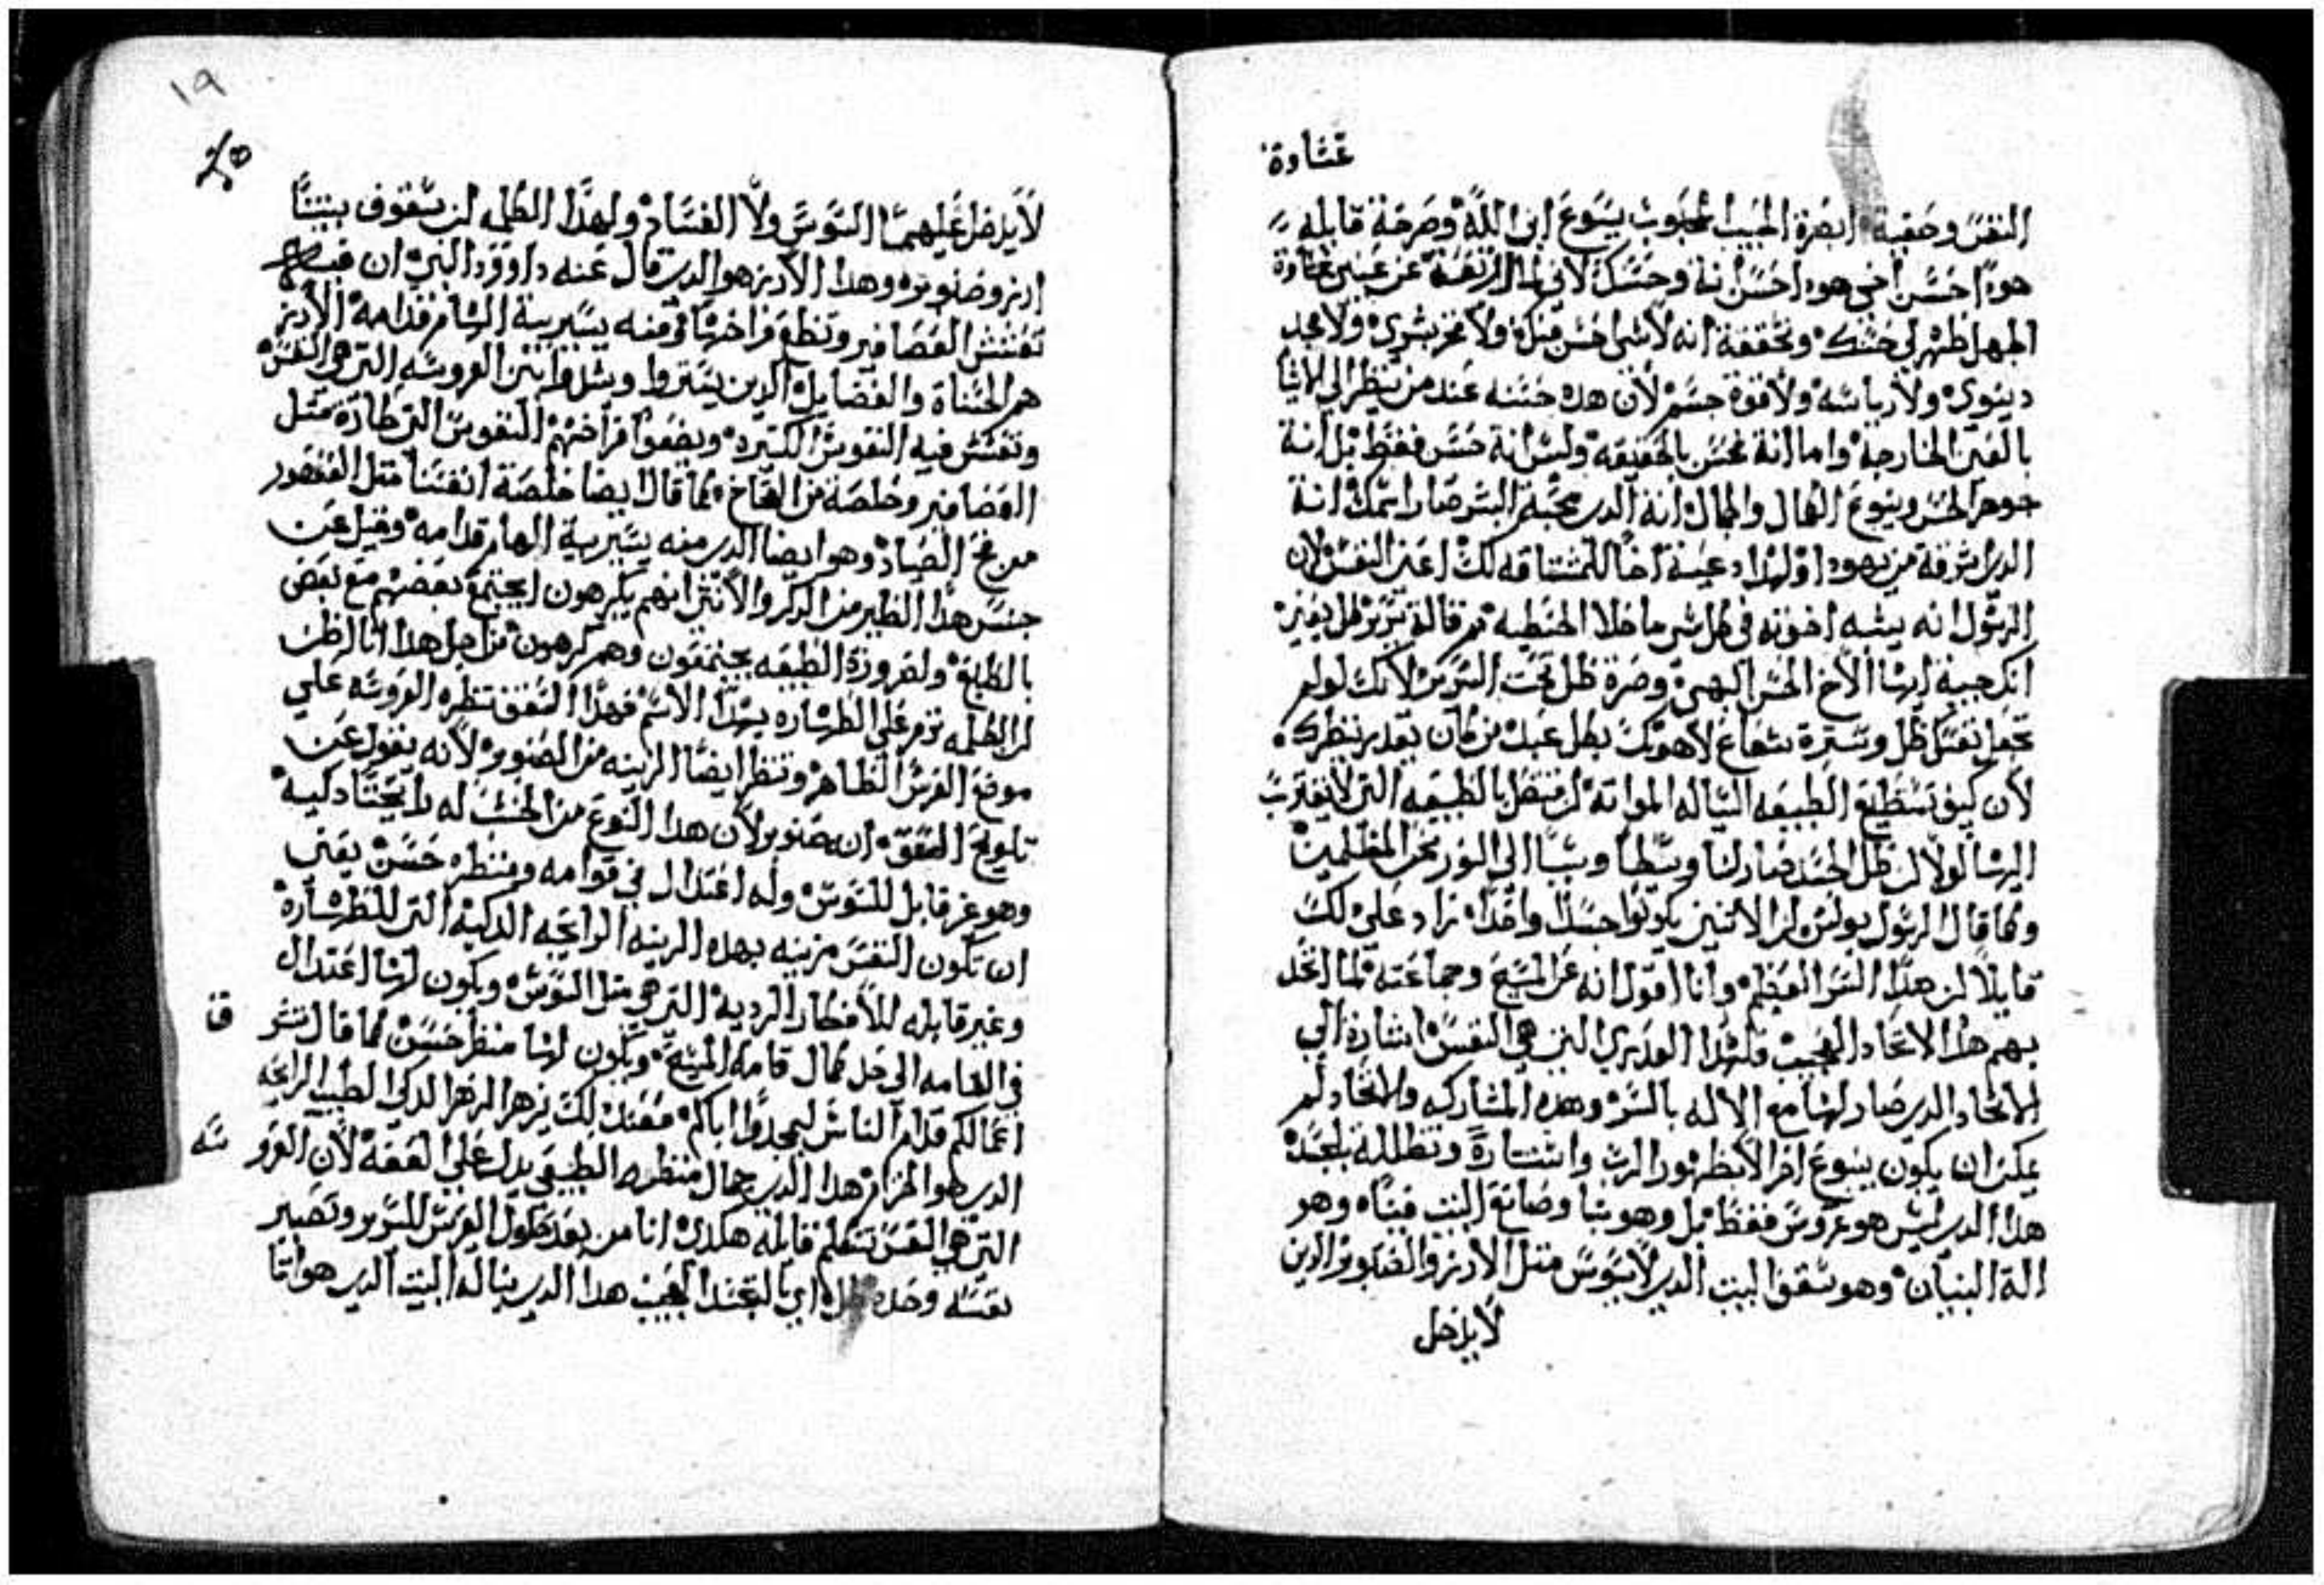 غشاوة
النفس وحقبة ابصرة الحبيب المحبوب يسوع ابن الله وصرخة قايله
هودا حسن اخي هودا حسن انة وحسك لاني لما ارتفعة عن عيني غشاوة
الجهل ظهر لي حسنك وتحققة انه لاشي احسن منك ولا فخر بشري ولا مجد
دينوي ولا رياسه ولا قوة جسم لان هده حسنه عند من ينظر الي الاشيا
بالعين الخارجة واما انة فحسن بالحقيقه وليس انة حسن فقط بل انة
جوهر الحسن وينبوع الكمال والجمال انة الدي محبة البشر صار اسمك انة
الدي اشرقة من يهودا ولهدا دعية اخا للمشتاقه لك اعني النفس لان
الرسول انه يشبه اخوته في كل شي ما خلا الخطيه تم قالة سرير ظل يعني
انك جية ايها الاخ الحسن البهي وصرة ظل تحت السرير لانك لو لم
تجعل نفسك ظل وسترة شعاع لاهوتك بظل عبد من كان يقدر ينظرك
لان كيف تستطيع الطبيعه السياله المواته ان تتصل بالطبيعه التي لا يقترب
اليها لولا ان ظل الجسد صار لنا وسطا وسببا الي النور نحن المظلمين
وكما قال الرسول بولس ان الاتنين يكونوا جسدا واحدا زاد علي دلك
قايلا ان هدا السر العظيم وانا اقول انه عن المسيح وجماعته فلما اتحد
بهم هدا الاتحاد العجيب فلهدا العديري التي هي النفس اشارة الي
الاتحاد الدي صار لها مع الاله بالسر وهده المشاركه والاتحاد لم
يمكن ان يكون بنوع اخر الا بظهور الرب واستتارة وتظلله بالجسد
هدا الدي ليس هو عروس فقط بل وهو بنا وصانع البيت فينا وهو
الة البنيان وهو سقف البيت الدي لا يسوس متل الارز والصنوبر الدين
لا يدخل
١٩
لا يدخل عليهما السوس ولا الفساد ولهدا الكلمه ان سقوف بيتنا
ارز وصنوبر وهدا الارز هو الدي قال عنه داوود النبي ان فيه
تعشش العصافير وتضع فراخها وفوقه يسير بيت الهام قدامه الارز
هم الحسناة والفضايل الدين يستروا ويشدوا بيت العروسه التي هي النفس
وتعشش فيه النفوس الكتيرة ويضعوا فراخهم النفوس التي طارة متل
العصافير وخلصة من الفخاخ كما قال ايضا خلصة انفسنا متل العصفور
من فخ الصياد وهو ايضا الدي منه يسير بية الهام قدامه وقيل عن
جنس هدا الطير من الدكر والانتي انهم يكرهون ان يجتمع بعضهم مع بعض
بالطبع ولضرورة الطبيعه يجتمعون وهم كرهون من اجل هدا انا اظن
ان الكلمه ترمز علي الطهاره بهدا الاسم فهدا السقف تنظره العروسه علي
موضع الفرش الظاهر وتنظر ايضا الزينه من الصنوبر لانه يقول عن
تلويح السقف انه صنوبر لان هدا النوع من الخشب له رايحتا دكيه
وهو غير قابل للسوس وله اعتدال في قوامه ومنظره حسن يعني
ان تكون النفس مزينه بهده الزينه الرايحه الدكيه التي للطهاره
وغير قابله للافكار الرديه التي هي متل السوس ويكون لها اعتدال
في القامه الي حد كمال قامه المسيح ويكون لها منظر حسن كما قال تشرق
اعمالكم قدام الناس ليمجدوا اباكم فعند دلك يزهر الزهر الدكي الطيب الرايحه
الدي هو الحزام هدا الدي جمال منظره الطبيعي يدل علي العفه لان العروسه
التي هي النفس تتكلم قايله هكدي انا من بعد حلول العريس للسرير وتصير
نفسه وحده ظل اي بالتجسد العجيب هدا الدي بنا له البيت الدي هو انا